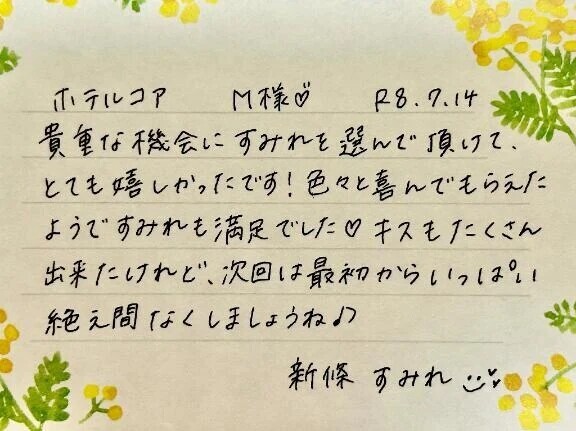 ホテルコア M様♡ R8.7.14
貴重な機会にすみれを選んで頂けて、
とても嬉しかったです！色々と喜んでもらえた
ようですみれも満足でした♡キスもたくさん
出来たけれど、次回は最初からいっぱい
絶え間なくしましょうね♪
新條 すみれ